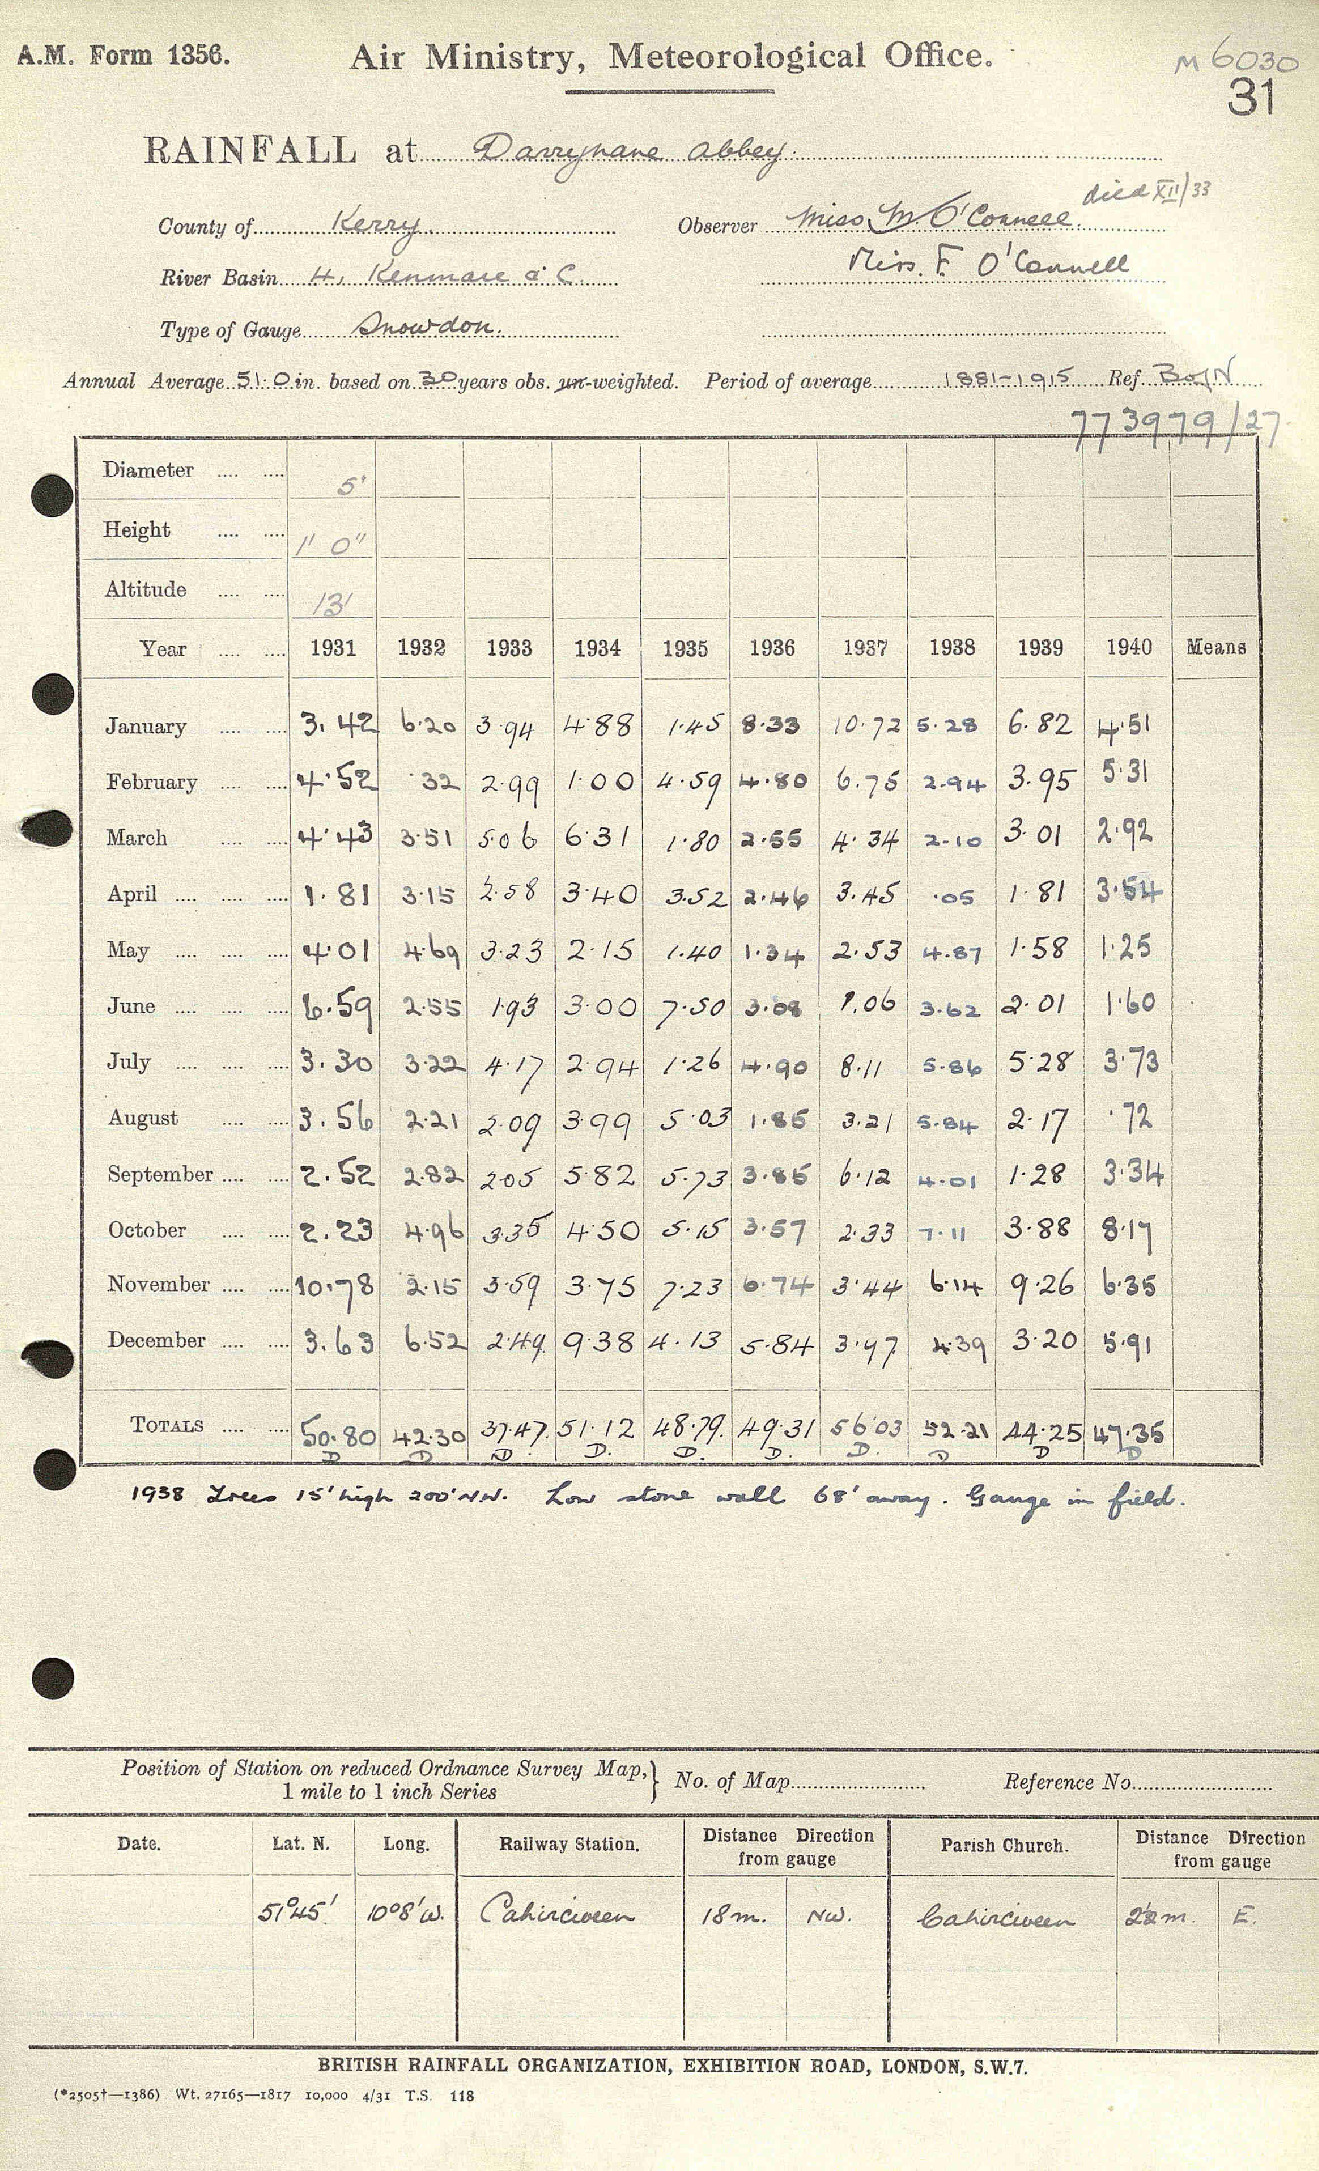 A.M. Form 1356. Air Ministry, Meteorological Office. M 6030
31
RAINFALL at Darrynane Abbey.
died XII/33
County of Kerry. Observer Miss M. O'Connell.
River Basin H. Kenmare & C. Miss. F. O'Connell
Type of Gauge Snowdon.
Annual Average 51.0 in. based on 30 years obs. un-weighted. Period of average 1881-1915 Ref.
773979/27
Diameter .... .... 5"
Height .... .... 1' 0"
Altitude .... .... 13'
Year .... .... 1931 1932 1933 1934 1935 1936 1937 1938 1939 1940 Means
January .... .... 3.42 6.20 3.94 4.88 1.45 8.33 10.72 5.28 6.82 4.51
February .... .... 4.52 .32 2.99 1.00 4.59 4.80 6.75 2.94 3.95 5.31
March .... .... 4.43 3.51 5.06 6.31 1.80 2.55 4.34 2.10 3.01 2.92
April .... .... .... 1.81 3.15 2.58 3.40 3.52 2.46 3.45 .05 1.81 3.54
May .... .... .... 4.01 4.69 3.23 2.15 1.40 1.34 2.53 4.87 1.58 1.25
June .... .... .... 6.59 2.55 1.93 3.00 7.50 3.08 1.06 3.62 2.01 1.60
July .... .... .... 3.30 3.22 4.17 2.94 1.26 4.90 8.11 5.86 5.28 3.73
August .... .... 3.56 2.21 2.09 3.99 5.03 1.85 3.21 5.84 2.17 .72
September .... .... 2.52 2.82 2.05 5.82 5.73 3.85 6.12 4.01 1.28 3.34
October .... .... 2.23 4.96 3.35 4.50 5.15 3.57 2.33 7.11 3.88 8.17
November .... .... 10.78 2.15 3.59 3.75 7.23 6.74 3.44 6.14 9.26 6.35
December .... .... 3.63 6.52 2.49 9.38 4.13 5.84 3.97 4.39 3.20 5.91
TOTALS .... .... 50.80 42.30 37.47 51.12 48.79 49.31 56.03 52.21 44.25 47.35
D D D D. D. D. D. D D D
1938 Trees 15' high 200' NW. Low stone wall 68' away. Gauge in field.
Position of Station on reduced Ordnance Survey Map, } No. of Map Reference No.
1 mile to 1 inch Series
Date. Lat. N. Long. Railway Station. Distance Direction from gauge Parish Church. Distance Direction from gauge
51°45' 10°8'W. Cahirciveen 18m. NW. Cahirciveen E.
BRITISH RAINFALL ORGANIZATION, EXHIBITION ROAD, LONDON, S.W.7.
(*2505†—1386) Wt. 27165—1817 10,000 4/31 T.S. 118